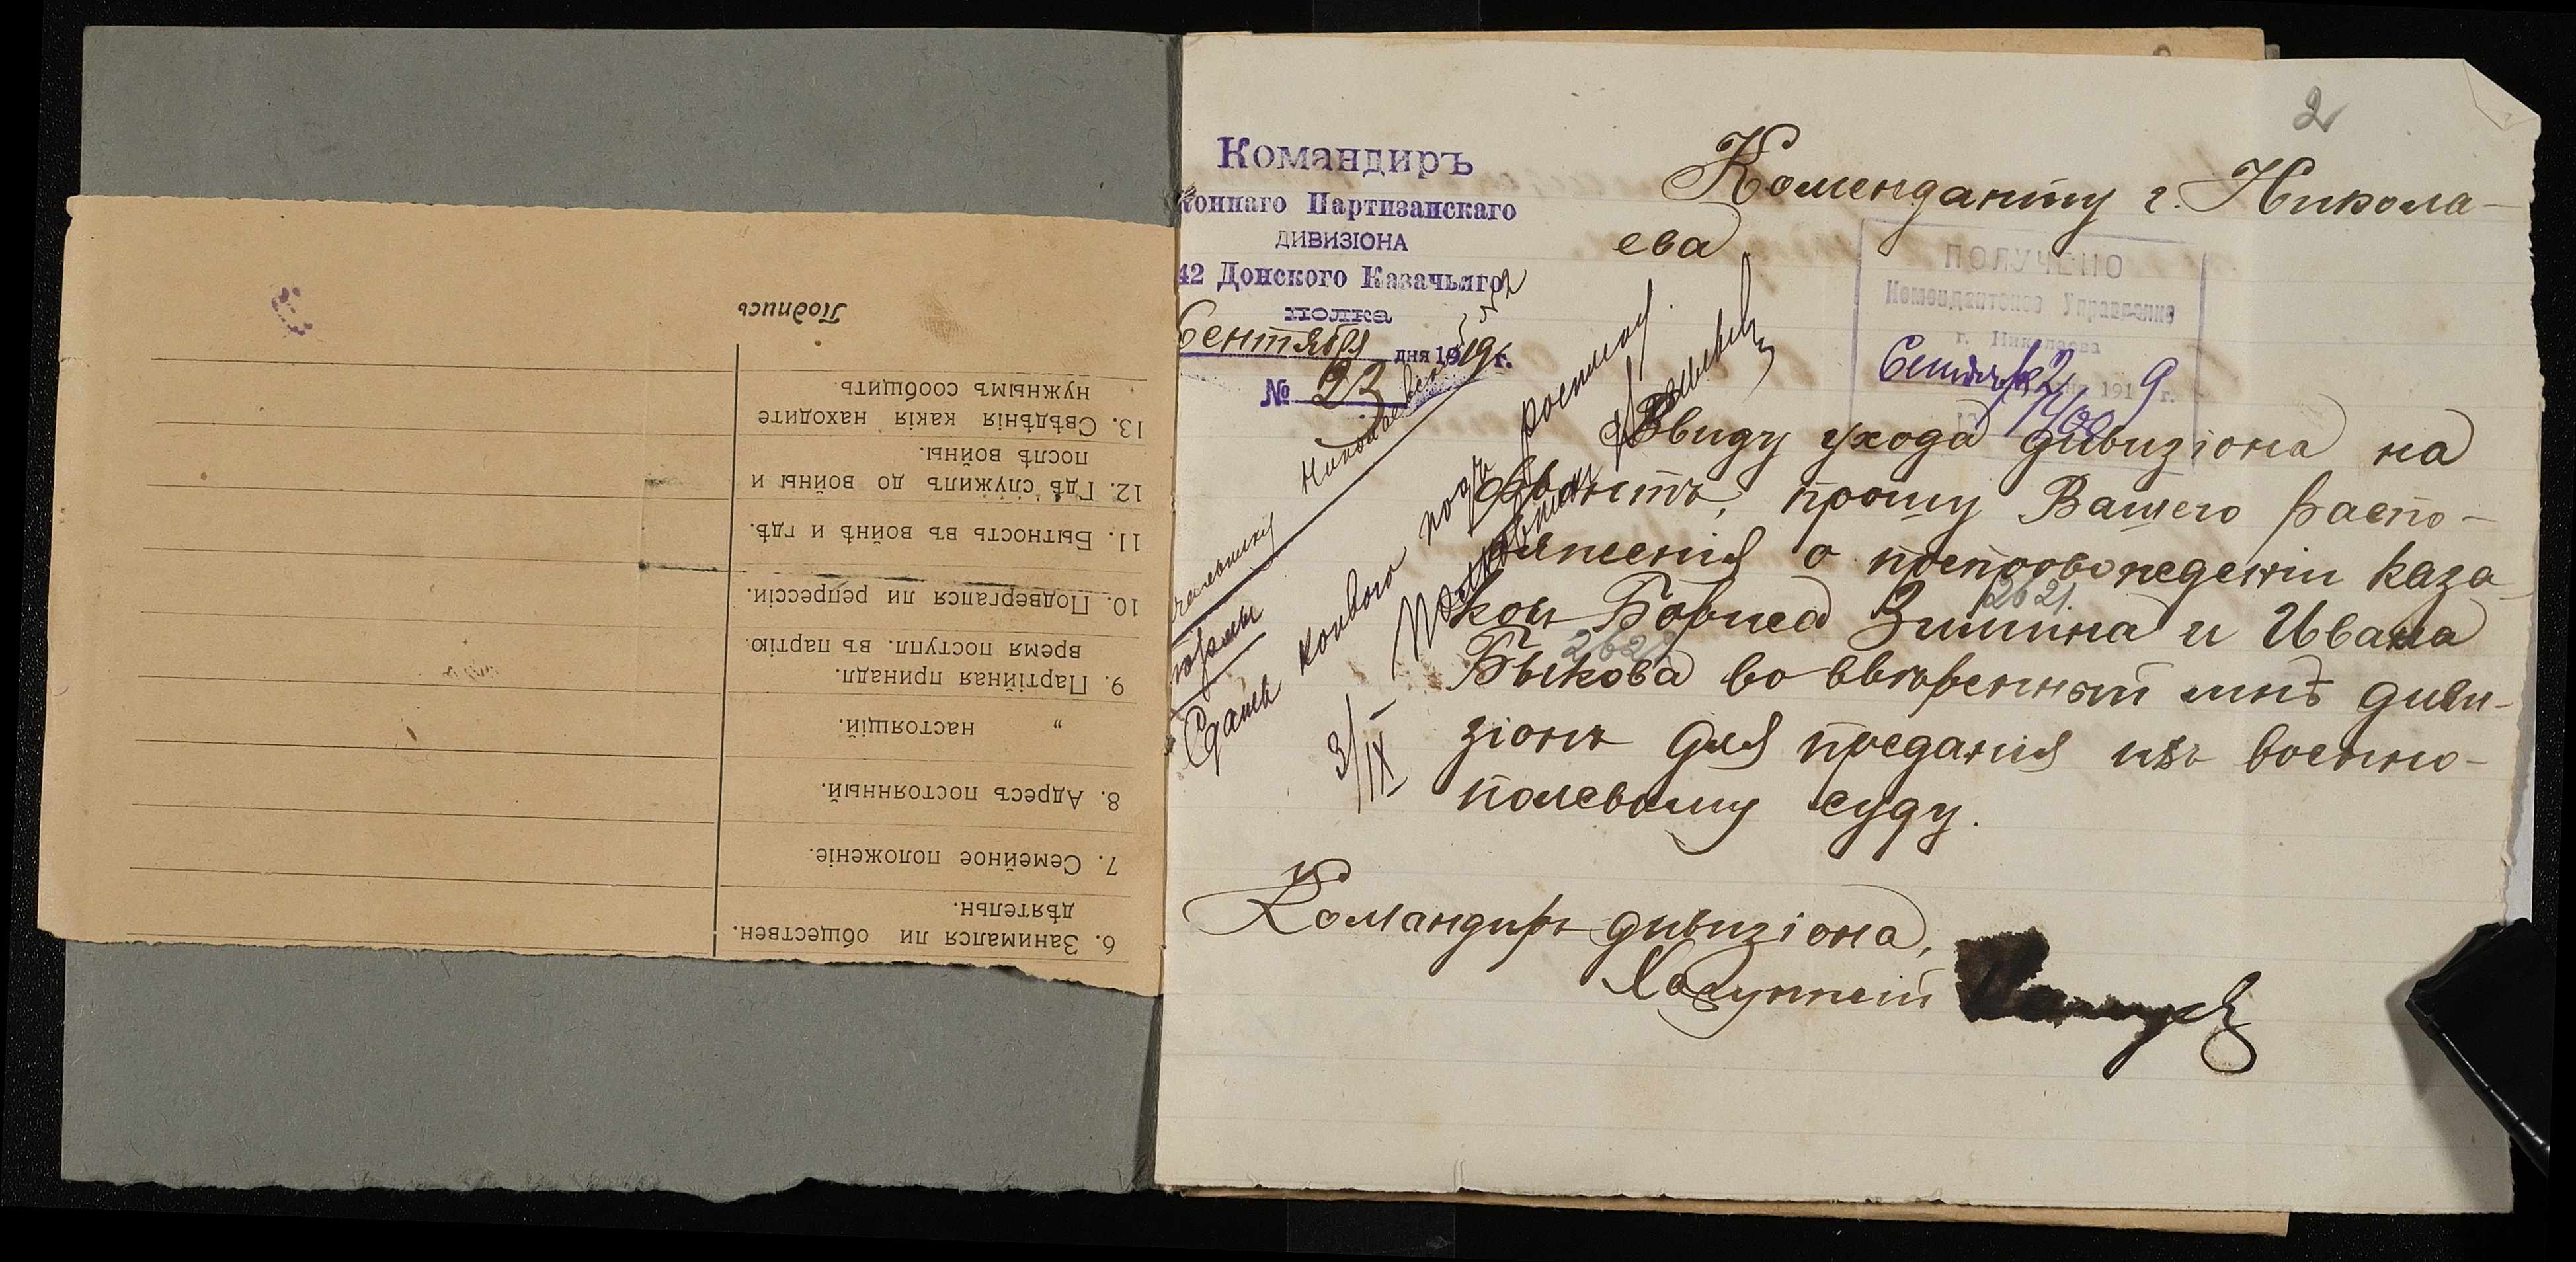 6. Занимался ли обществен.
дѣятельн.
7. Семейное положеніе.
8. Адресъ постоянный.
„ настоящій.
9. Партійная принадл.
время поступл. въ партію
10. Подвергался ли репрессіи.
11. Бытность въ войнѣ и гдѣ.
12. Гдѣ служилъ до войны и
послѣ войны.
13. Свѣдѣнія какія находите
нужнымъ сообщить.
Подпись
2
Командиръ
Коннаго Партизанскаго
ДИВИЗІОНА
42 Донского Казачьяго
полка
Сентября дня 1919 г.
№ 23
Коменданту г. Никола-
ева
ПОЛУЧЕНО
Комендантское Управление
г. Николаева
Сентября 2 дня 1919 г.
Ввиду ухода дивизіона на
прошу Вашего распо-
ряженія о препровожденіи каза-
2621.
ков Бориса Зимина и Ивана
2622
Быкова во ввѣренный мнѣ диви-
зіонъ для преданія ихъ военно-
полевому суду.
Командиръ дивизіона,
Хорунжій
Начальнику Николаевской
тюрьмы
Сдать конвою подъ росписку.
3/IX